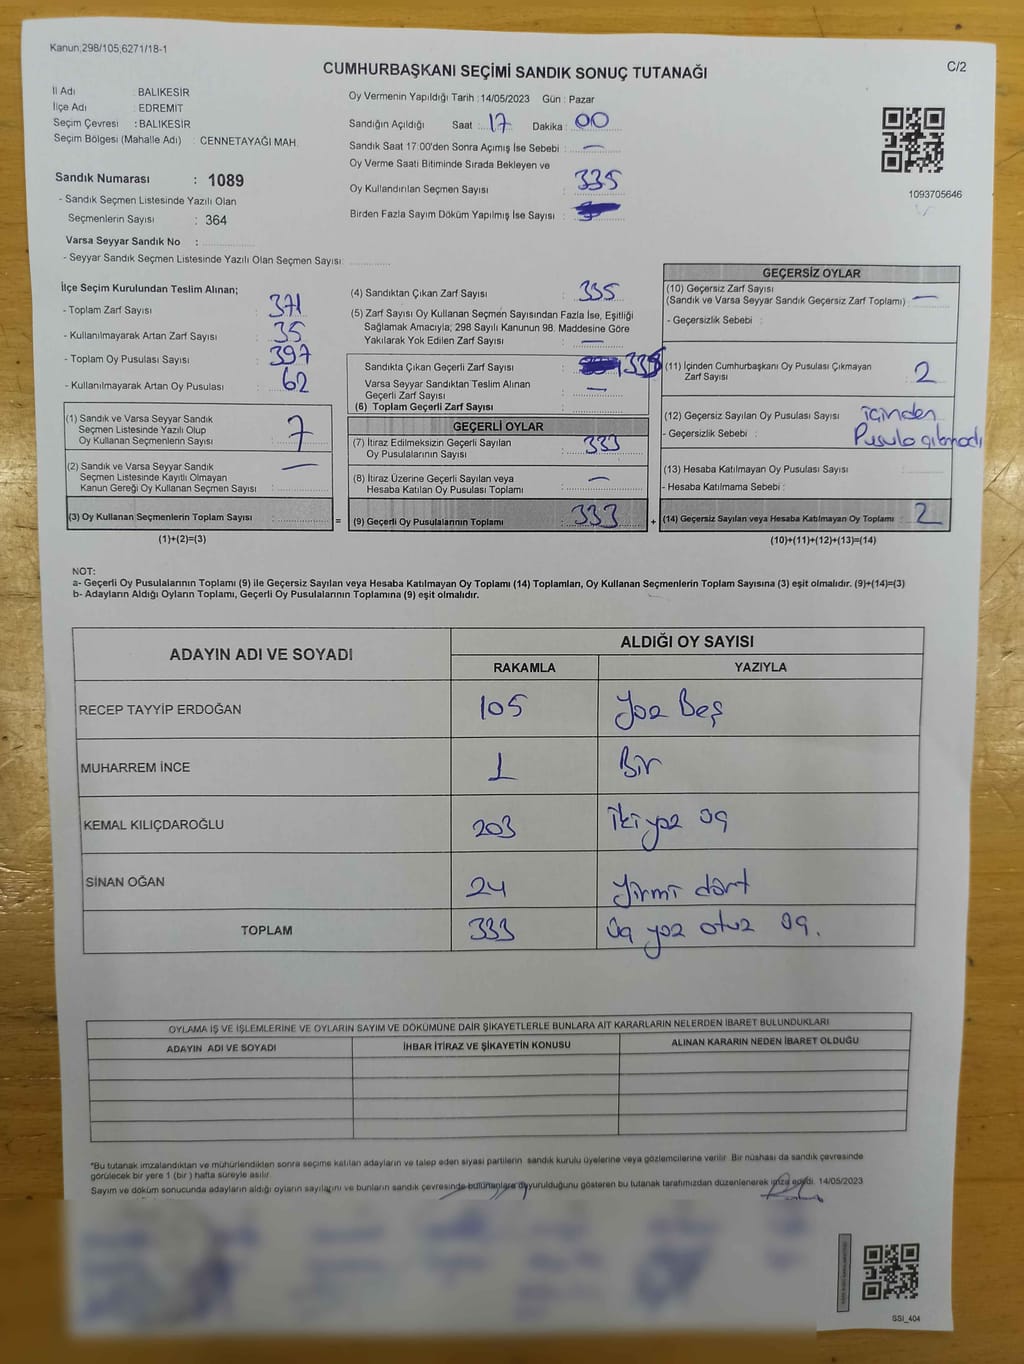 Kanun;298/105,6271/18-1
C/2
CUMHURBAŞKANI SEÇİMİ SANDIK SONUÇ TUTANAĞI
İl Adı : BALIKESİR
İlçe Adı : EDREMİT
Seçim Çevresi : BALIKESİR
Seçim Bölgesi (Mahalle Adı) : CENNETAYAĞI MAH.
Sandık Numarası : 1089
- Sandık Seçmen Listesinde Yazılı Olan
Seçmenlerin Sayısı : 364
Varsa Seyyar Sandık No :
- Seyyar Sandık Seçmen Listesinde Yazılı Olan Seçmen Sayısı:
Oy Vermenin Yapıldığı Tarih : 14/05/2023 Gün : Pazar
Sandığın Açıldığı Saat : 17 Dakika : 00
Sandık Saat 17:00'den Sonra Açımış İse Sebebi : —
Oy Verme Saati Bitiminde Sırada Bekleyen ve
Oy Kullandırılan Seçmen Sayısı : 335
Birden Fazla Sayım Döküm Yapılmış İse Sayısı :
1093705646
İlçe Seçim Kurulundan Teslim Alınan;
- Toplam Zarf Sayısı : 371
- Kullanılmayarak Artan Zarf Sayısı : 35
- Toplam Oy Pusulası Sayısı : 397
- Kullanılmayarak Artan Oy Pusulası : 62
(1) Sandık ve Varsa Seyyar Sandık
Seçmen Listesinde Yazılı Olup
Oy Kullanan Seçmenlerin Sayısı : 7
(2) Sandık ve Varsa Seyyar Sandık
Seçmen Listesinde Kayıtlı Olmayan
Kanun Gereği Oy Kullanan Seçmen Sayısı : —
(3) Oy Kullanan Seçmenlerin Toplam Sayısı :
(1)+(2)=(3)
=
(4) Sandıktan Çıkan Zarf Sayısı : 335
(5) Zarf Sayısı Oy Kullanan Seçmen Sayısından Fazla İse, Eşitliği
Sağlamak Amacıyla; 298 Sayılı Kanunun 98. Maddesine Göre
Yakılarak Yok Edilen Zarf Sayısı : —
Sandıkta Çıkan Geçerli Zarf Sayısı : 335
Varsa Seyyar Sandıktan Teslim Alınan
Geçerli Zarf Sayısı : —
(6) Toplam Geçerli Zarf Sayısı :
GEÇERLİ OYLAR
(7) İtiraz Edilmeksizin Geçerli Sayılan
Oy Pusulalarının Sayısı : 333
(8) İtiraz Üzerine Geçerli Sayılan veya
Hesaba Katılan Oy Pusulası Toplamı : —
(9) Geçerli Oy Pusulalarının Toplamı : 333
+
GEÇERSİZ OYLAR
(10) Geçersiz Zarf Sayısı
(Sandık ve Varsa Seyyar Sandık Geçersiz Zarf Toplamı) : —
- Geçersizlik Sebebi :
(11) İçinden Cumhurbaşkanı Oy Pusulası Çıkmayan
Zarf Sayısı : 2
(12) Geçersiz Sayılan Oy Pusulası Sayısı : içinden
- Geçersizlik Sebebi : Pusula çıkmadı
(13) Hesaba Katılmayan Oy Pusulası Sayısı :
- Hesaba Katılmama Sebebi :
(14) Geçersiz Sayılan veya Hesaba Katılmayan Oy Toplamı : 2
(10)+(11)+(12)+(13)=(14)
NOT:
a- Geçerli Oy Pusulalarının Toplamı (9) ile Geçersiz Sayılan veya Hesaba Katılmayan Oy Toplamı (14) Toplamları, Oy Kullanan Seçmenlerin Toplam Sayısına (3) eşit olmalıdır. (9)+(14)=(3)
b- Adayların Aldığı Oyların Toplamı, Geçerli Oy Pusulalarının Toplamına (9) eşit olmalıdır.
ADAYIN ADI VE SOYADI
ALDIĞI OY SAYISI
RAKAMLA YAZIYLA
RECEP TAYYİP ERDOĞAN 105 Yüz Beş
MUHARREM İNCE 1 Bir
KEMAL KILIÇDAROĞLU 203 İki yüz üç
SİNAN OĞAN 24 Yirmi dört
TOPLAM 333 Üç yüz otuz üç.
OYLAMA İŞ VE İŞLEMLERİNE VE OYLARIN SAYIM VE DÖKÜMÜNE DAİR ŞİKAYETLERLE BUNLARA AİT KARARLARIN NELERDEN İBARET BULUNDUKLARI
ADAYIN ADI VE SOYADI İHBAR İTİRAZ VE ŞİKAYETİN KONUSU ALINAN KARARIN NEDEN İBARET OLDUĞU
*Bu tutanak imzalandıktan ve mühürlendikten sonra seçime katılan adayların ve talep eden siyasi partilerin sandık kurulu üyelerine veya gözlemcilerine verilir. Bir nüshası da sandık çevresinde
görülecek bir yere 1 (bir) hafta süreyle asılır.
Sayım ve döküm sonucunda adayların aldığı oyların sayılarını ve bunların sandık çevresinde bulunanlara duyurulduğunu gösteren bu tutanak tarafımızdan düzenlenerek imza edildi. 14/05/2023
SSI_404